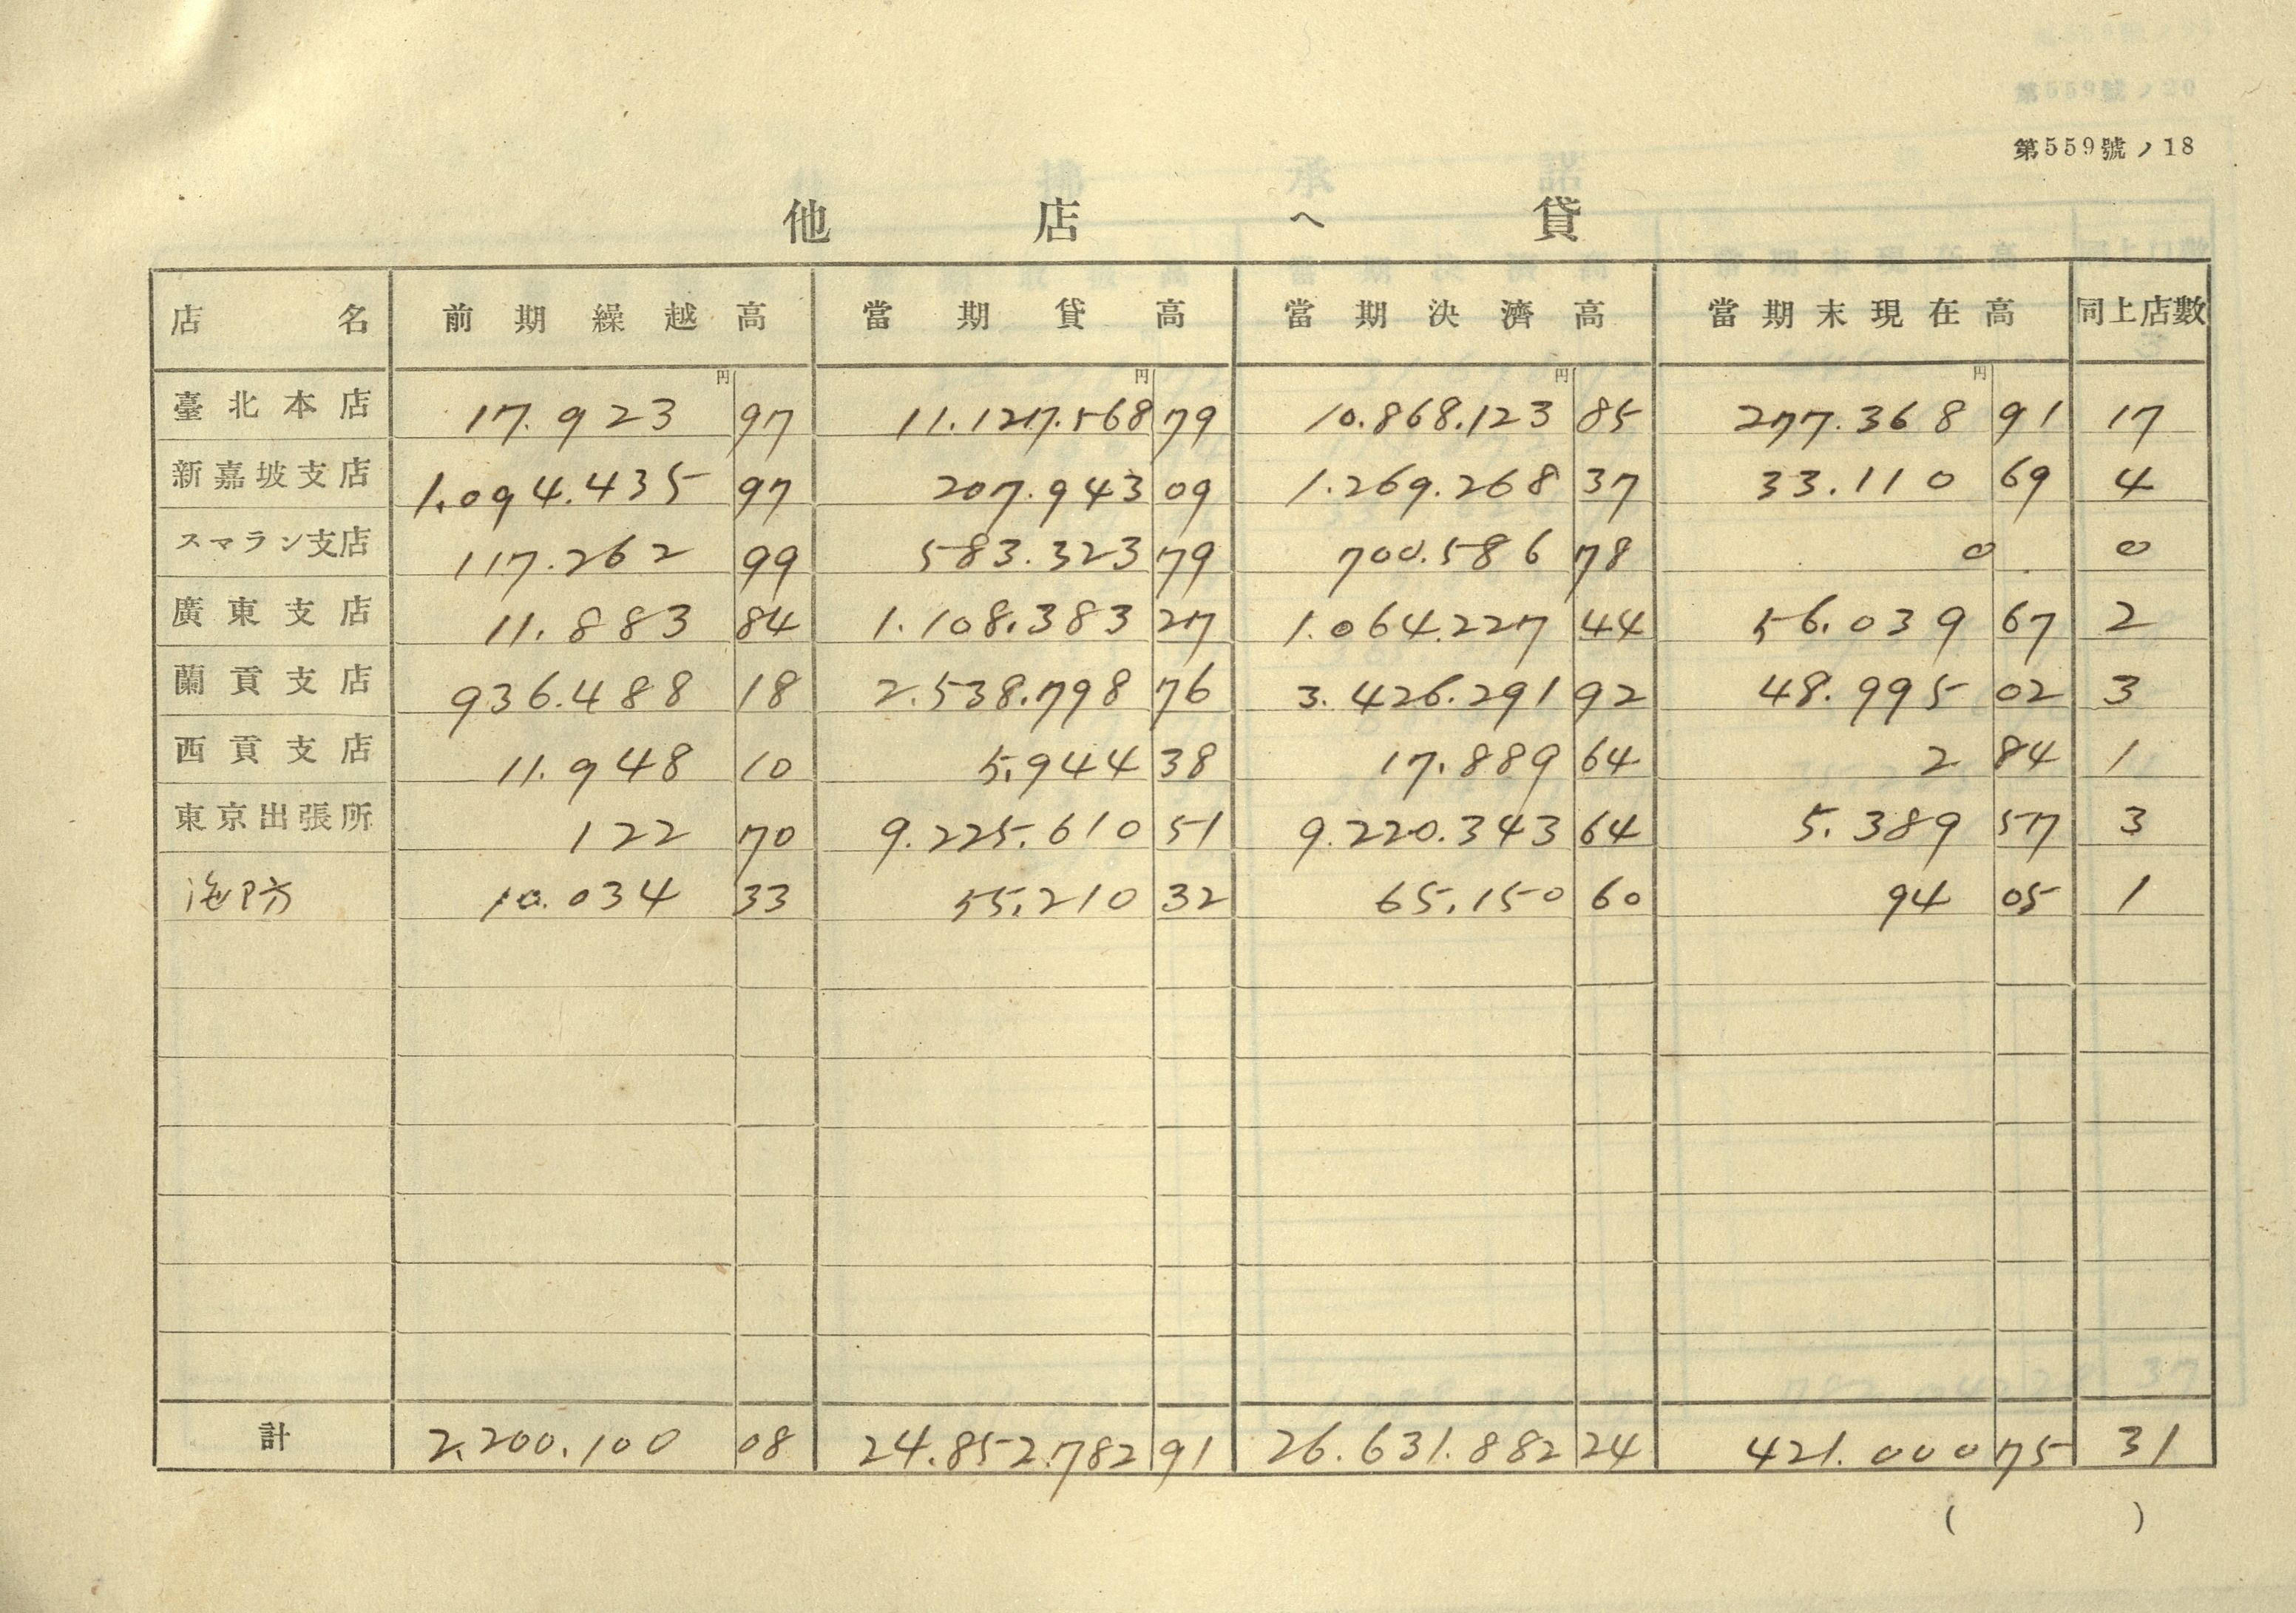 第559號ノ18
他店へ貸
店名 前期繰越高 當期貸高 當期決濟高 當期末現在高 同上店數
円 円 円 円
臺北本店 17.923 97 11.127.568 79 10.868.123 85 277.368 91 17
新嘉坡支店 1.094.435 97 207.943 09 1.269.268 37 33.110 69 4
スマラン支店 117.262 99 583.323 79 700.586 78 0 0
廣東支店 11.883 84 1.108.383 27 1.064.227 44 56.039 67 2
蘭貢支店 936.488 18 2.538.798 76 3.426.291 92 48.995 02 3
西貢支店 11.948 10 5.944 38 17.889 64 2 84 1
東京出張所 122 70 9.225.610 51 9.220.343 64 5.389 57 3
海防 10.034 33 55.210 32 65.150 60 94 05 1
計 2.200.100 08 24.852.782 91 26.631.882 24 421.000 75 31
( )